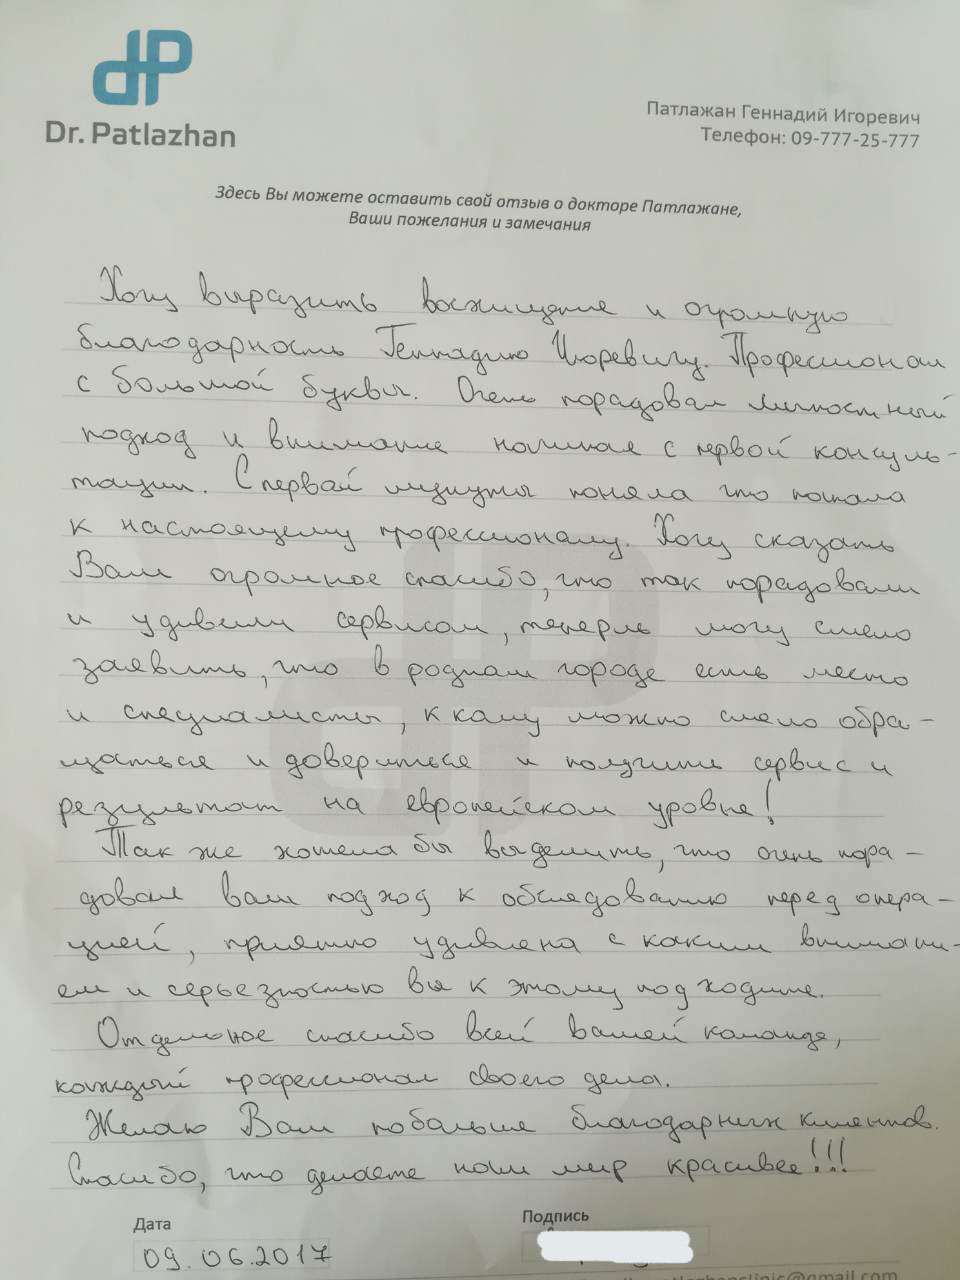 dP
Dr. Patlazhan
Патлажан Геннадий Игоревич
Телефон: 09-777-25-777
Здесь Вы можете оставить свой отзыв о докторе Патлажане,
Ваши пожелания и замечания
Хочу выразить восхищение и огромную
благодарность Геннадию Игоревичу. Профессионал
с большой буквы. Очень порадовал личностный
подход и внимание начиная с первой консуль-
тации. С первой минуты поняла что попала
к настоящему профессионалу. Хочу сказать
Вам огромное спасибо, что так порадовали
и удивили сервисом, теперь могу смело
заявить, что в родном городе есть место
и специалисты, к кому можно смело обра-
щаться и довериться и получить сервис и
результат на европейском уровне!
Так же хотела бы выделить, что очень пора-
довал ваш подход к обследованию перед опера-
цией, приятно удивлена с каким внимани-
ем и серьезностью вы к этому подходите.
Отдельное спасибо всей вашей команде,
каждый профессионал своего дела.
Желаю Вам побольше благодарных клиентов.
Спасибо, что делаете наш мир красивее!!!
Дата
Подпись
09.06.2017